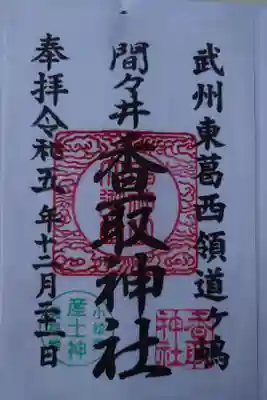 武州東葛西領道ヶ嶋
間々井香取神社
奉拝令和五年十二月三十一日
香取神社
産土神